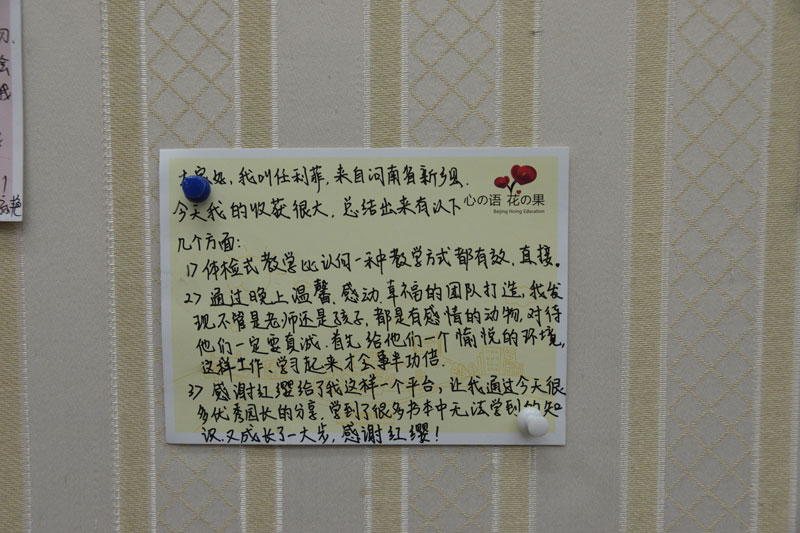 大家好，我叫任利菲，来自河南省新乡县.
心の语 花の果
Beijing Hoing Education
今天我的收获很大．总结出来有以下
几个方面：
1> 体检式教学比认何一种教学方式都有效．直接。
2> 通过晚上温馨．感动．幸福的团队打造，我发
现不管是老师还是孩子．都是有感情的动物，对待
他们一定要真诚．首先给他们一个愉悦的环境，
这样工作．学习起来才会事半功倍．
3> 感谢红缨给了我这样一个平台．让我通过今天很
多优秀园长的分享．学到了很多书本中无法学到的知
识．又成长了一大步，感谢红缨！